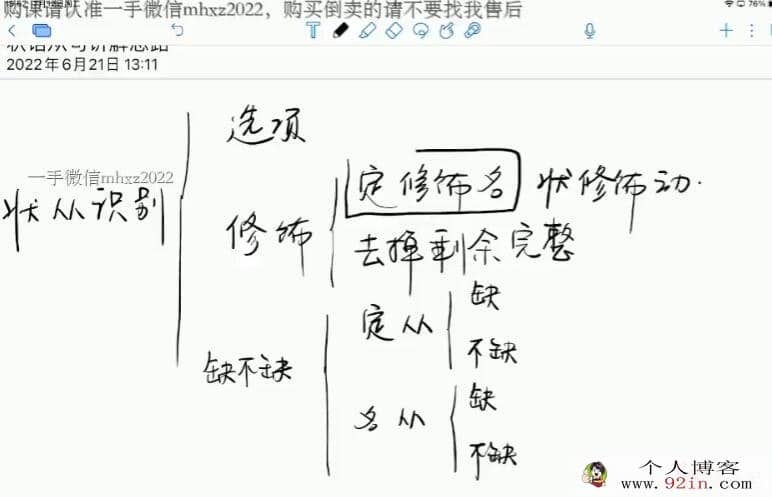 购课请认准一手微信mhxz2022，购买倒卖的请不要找我售后
76%
状语从句讲解思路
2022年6月21日 13:11
选项
一手微信mhxz2022
定修饰名 状修饰动.
状从识别
修饰
去掉剩余完整
缺
定从
不缺
缺不缺
缺
名从
不缺
个人博客
www.92in.com